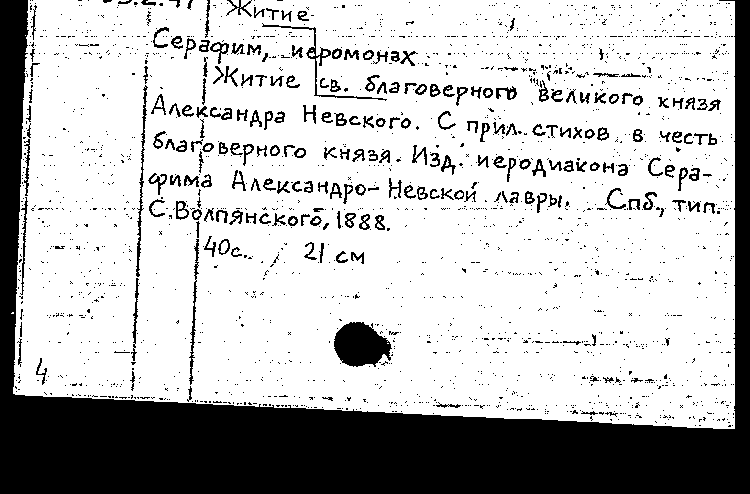 Житие
Серафим, иеромонах
Житие св. благоверного великого князя
Александра Невского. С прил. стихов в честь
благоверного князя. Изд. иеродиакона Сера-
фима Александро-Невской лавры. Спб., тип.
С. Волпянского, 1888.
40с. 21 см
4